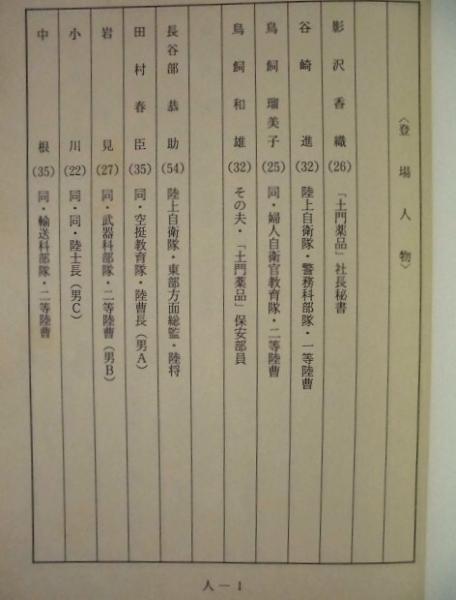 〈登場人物〉
影沢香織(26)「土門薬品」社長秘書
谷崎進(32)陸上自衛隊・警務科部隊・一等陸曹
鳥飼瑠美子(25)同・婦人自衛官教育隊・二等陸曹
鳥飼和雄(32)その夫・「土門薬品」保安部員
長谷部恭助(54)陸上自衛隊・東部方面総監・陸将
田村春臣(35)同・空挺教育隊・陸曹長(男A)
岩見(27)同・武器科部隊・二等陸曹(男B)
小川(22)同・同・陸士長(男C)
中根(35)同・輸送科部隊・二等陸曹
人－1